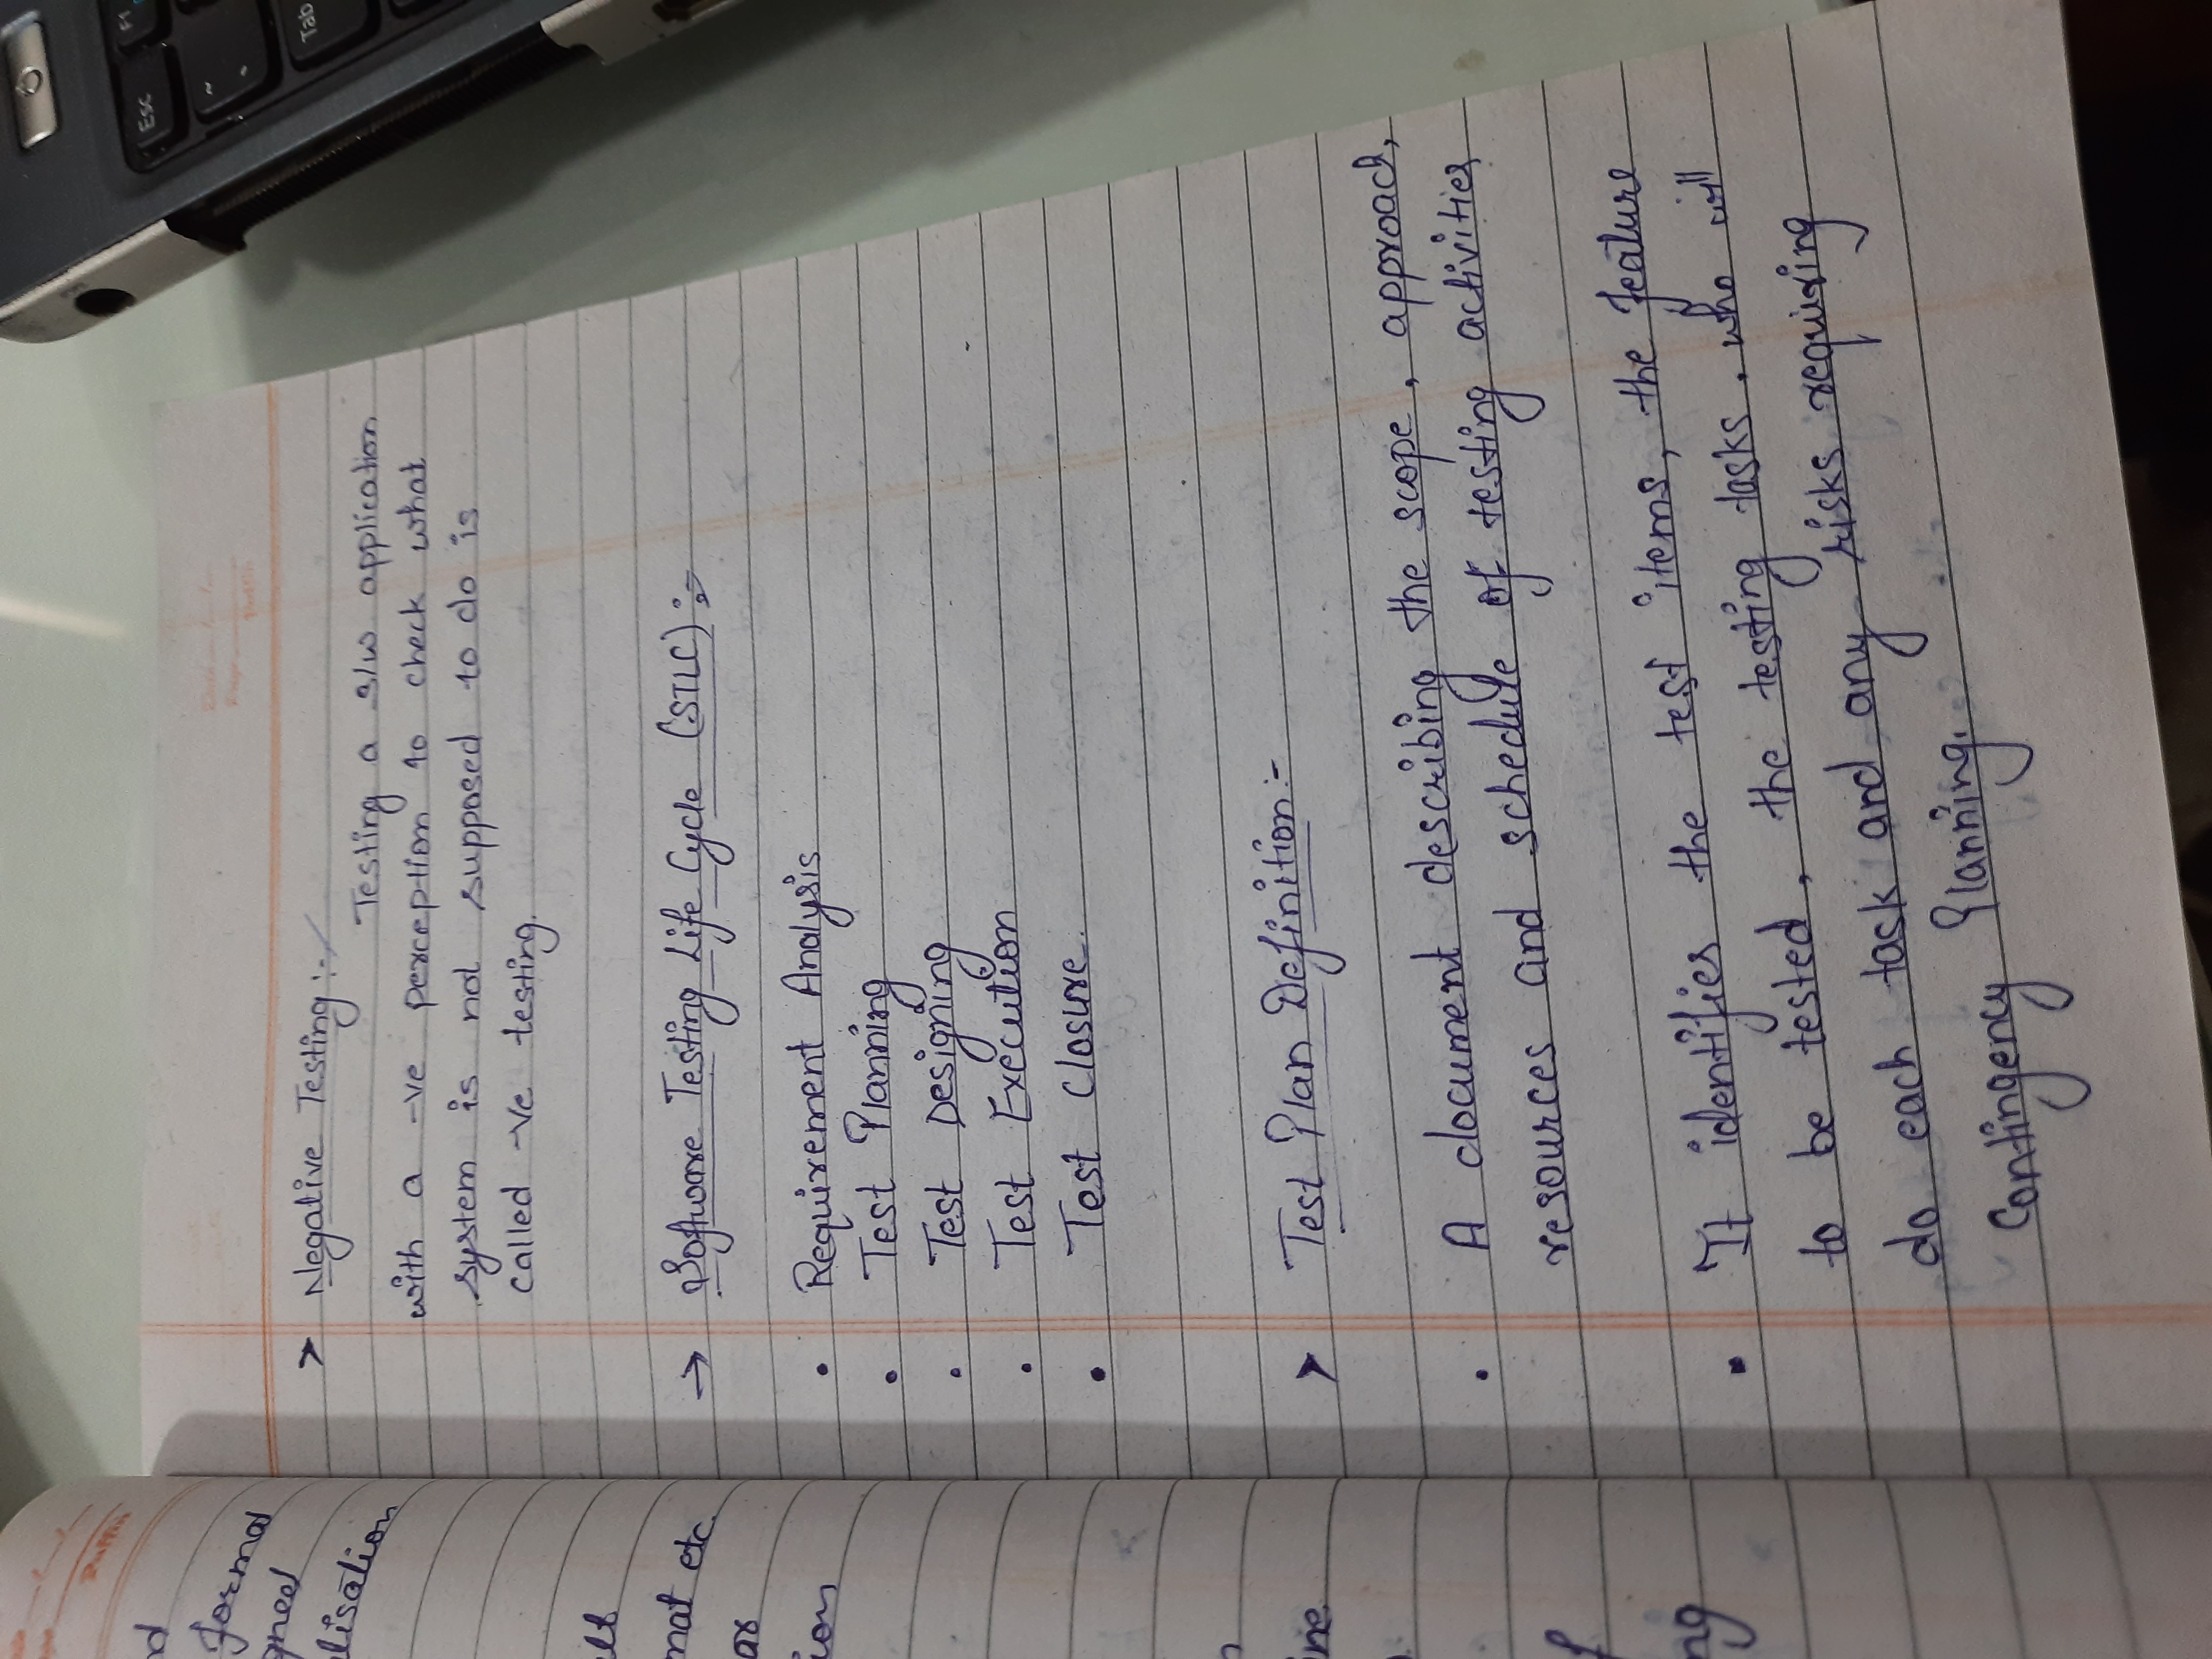 ➤ Negative Testing :-
Testing a s/w application
with a -ve perception to check what
system is not supposed to do is
called -ve testing.
→ Software Testing Life Cycle (STLC) :-
• Requirement Analysis
• Test Planning
• Test Designing
• Test Execution
• Test Closure.
➤ Test Plan Definition :-
• A document describing the scope, approach,
resources and schedule of testing activities
• It identifies the test items, the feature
to be tested, the testing tasks. who will
do each task and any risks requiring
Contingency Planning.
formal
lisation
mat etc.
Esc
F1
Tab
~